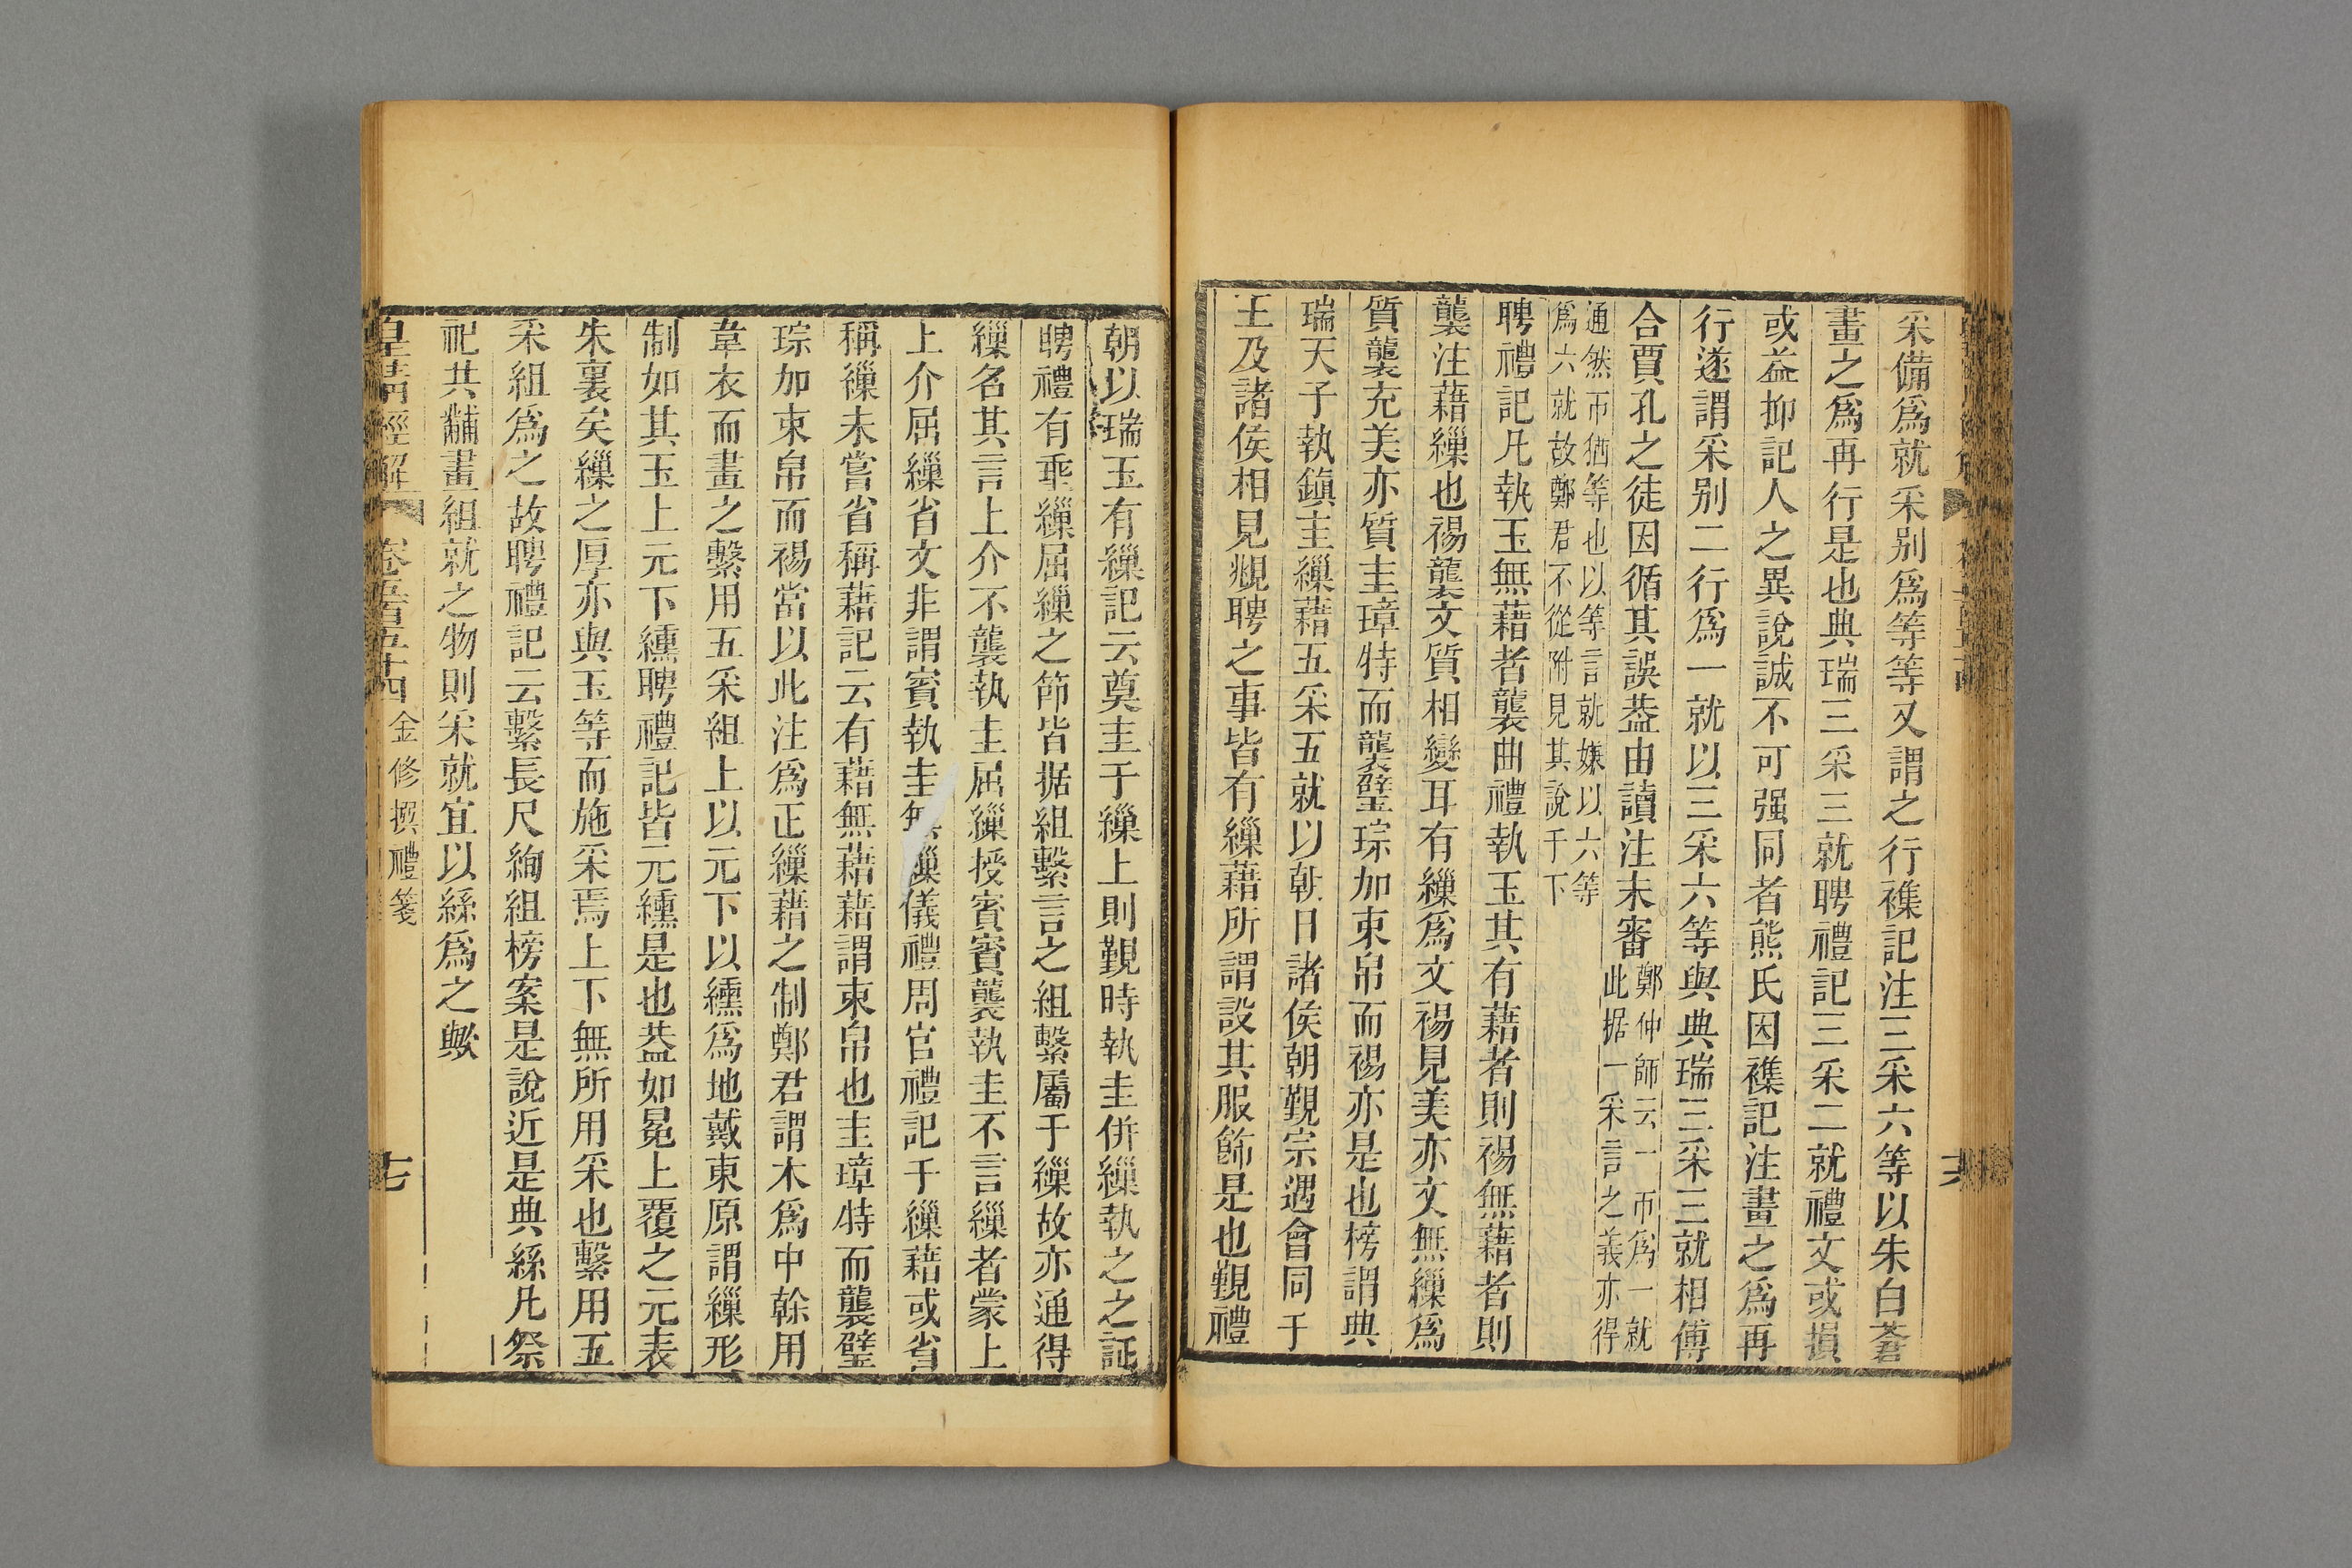 采備爲就采别爲等等又謂之行襍記注三采六等以朱白蒼
畫之爲再行是也典瑞三采三就聘禮記三采二就禮文或損
或益抑記人之異說誠不可强同者熊氏因襍記注畫之爲再
行遂謂采别二行爲一就以三采六等與典瑞三采三就相傅
合賈孔之徒因循其誤葢由讀注未審
鄭仲師云一帀爲一就
此据一采言之義亦得
通然帀猶等也以等言就嫌以六等
爲六就故鄭君不從附見其說于下
聘禮記凡執玉無藉者襲曲禮執玉其有藉者則裼無藉者則
襲注藉繅也裼襲文質相變耳有繅爲文裼見美亦文無繅爲
質襲充美亦質圭璋特而襲璧琮加束帛而裼亦是也榜謂典
瑞天子執鎮圭繅藉五采五就以朝日諸侯朝覲宗遇會同于
王及諸侯相見覜聘之事皆有繅藉所謂設其服飾是也覲禮
朝以瑞玉有繅記云奠圭于繅上則覲時執圭併繅執之之証
聘禮有垂繅屈繅之節皆据組繫言之組繫屬于繅故亦通得
繅名其言上介不襲執圭屈繅授賓賓襲執圭不言繅者蒙上
上介屈繅省文非謂賓執圭無繅儀禮周官禮記于繅藉或省
稱繅未嘗省稱藉記云有藉無藉藉謂束帛也圭璋特而襲璧
琮加束帛而裼當以此注爲正繅藉之制鄭君謂木爲中榦用
韋衣而畫之繫用五采組上以元下以纁爲地戴東原謂繅形
制如其玉上元下纁聘禮記皆元纁是也葢如冕上覆之元表
朱裏矣繅之厚亦與玉等而施采焉上下無所用采也繫用五
采組爲之故聘禮記云繫長尺絢組榜案是說近是典絲凡祭
祀共黼畫組就之物則采就宜以絲爲之歟
皇淸經解 卷五百五十四 金修撰禮箋 七